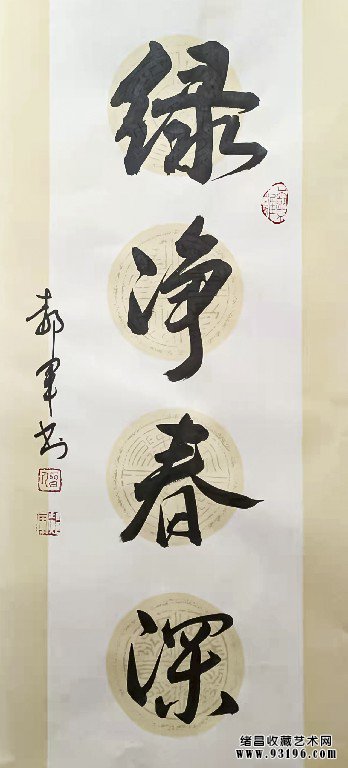 绿净春深
郝军书
绪昌收藏艺术网
www.93196.com